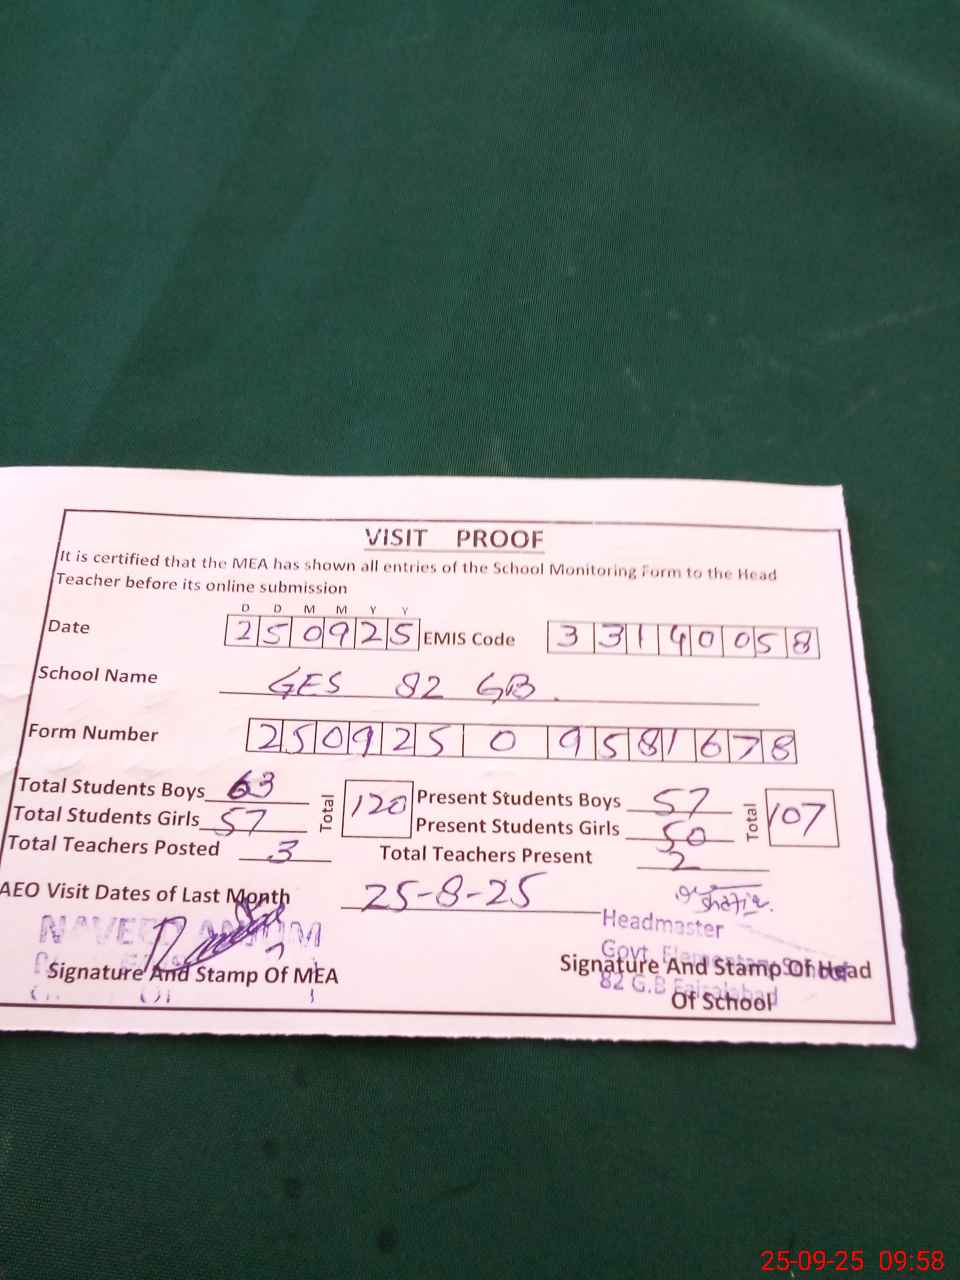 VISIT PROOF
It is certified that the MEA has shown all entries of the School Monitoring Form to the Head
Teacher before its online submission
D D M M Y Y
Date 250925 EMIS Code 33140058
School Name GES 82 GB.
Form Number 250925 0 9581678
Total Students Boys 63 Total 120 Present Students Boys 57 Total 107
Total Students Girls 57 Present Students Girls 50
Total Teachers Posted 3 Total Teachers Present 2
AEO Visit Dates of Last Month 25-8-25
NAVEED ANJUM
Headmaster
Govt. Elementary School
82 G.B Faisalabad
Signature And Stamp Of MEA Signature And Stamp Of Head
Of School
25-09-25 09:58